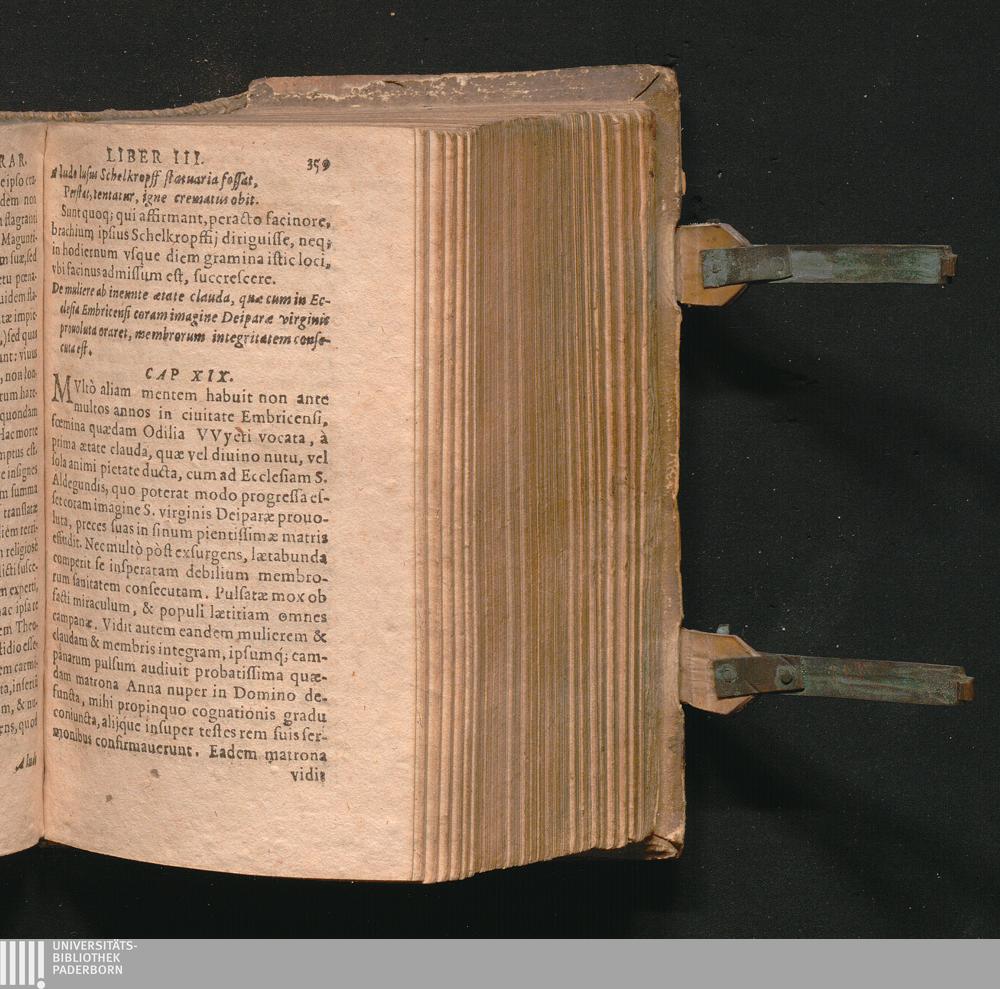 RAR.
LIBER III. 359
A ludo lusus Schelkropff statuaria fossat,
Perstat, tentatur, igne crematus obit.
Sunt quoq; qui affirmant, peracto facinore,
brachium ipsius Schelkropffij diriguisse, neq;
in hodiernum vsque diem gramina istic loci,
vbi facinus admissum est, succrescere.
De muliere ab ineunte ætate clauda, quæ cum in Ec-
clesia Embricensi coram imagine Deiparæ virginis
prouoluta oraret, membrorum integritatem conse-
cuta est.
CAP XIX.
MVltò aliam mentem habuit non ante
multos annos in ciuitate Embricensi,
fœmina quædam Odilia VVyeri vocata, à
prima ætate clauda, quæ vel diuino nutu, vel
sola animi pietate ducta, cum ad Ecclesiam S.
Aldegundis, quo poterat modo progressa es-
set coram imagine S. virginis Deiparæ prouo-
luta, preces suas in sinum pientissimæ matris
effudit. Nec multò pòst exsurgens, lætabunda
comperit se insperatam debilium membro-
rum sanitatem consecutam. Pulsatæ mox ob
facti miraculum, & populi lætitiam omnes
campanæ. Vidit autem eandem mulierem &
claudam & membris integram, ipsumq; cam-
panarum pulsum audiuit probatissima quæ-
dam matrona Anna nuper in Domino de-
functa, mihi propinquo cognationis gradu
coniuncta, alijque insuper testes rem suis ser-
monibus confirmauerunt. Eadem matrona
vidit
UNIVERSITÄTS-
BIBLIOTHEK
PADERBORN